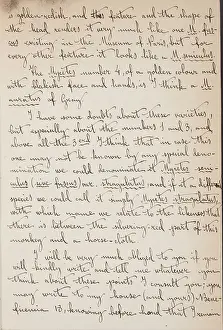 is golden-reddish, and this feature and the shape of
the head renders it very much like one M. fus-
cus existing in the Museum of Paris, but for
every other feature it looks like a M. seniculus.
The Mycetes number 4, of a golden colour and
with blakish face and hands, is I think a M.
auratus of Gray
I have some doubts about these varieties,
but especially about the numbers 1 and 3, and
above all the 3rd. I think that in case this
one may not be known by any special deno-
mination we could denominate it Mycetes seni-
culus (sive fuscus) var. stragulatus; and if a different
species we could call it simply Mycetes stragulatus,
with which name we relate to the likeness that
there is between the sturring-red part of this
monkey and a horse-cloth.
I will be very much obliged to you if you
will kindly write and tell me whatever you
think about these points I consult you; you
may write to my house (and yours)
13, knowing before-hand that I remain